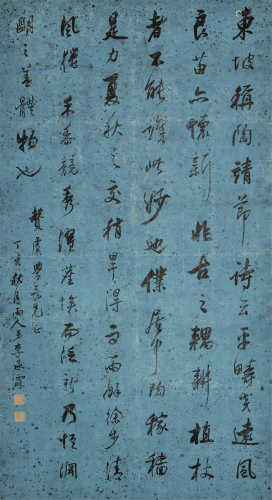 東坡稱陶靖節詩云平疇交遠風
良苗亦懷新非古之耦耕植杖
者不能識此妙也僕居中陶稼穡
是力夏秋之交稍旱得雨雨餘徐步清
風獵禾黍競秀濯塵埃而泛新乃悟淵
明之善體物也
學長兄正
丁亥秋月